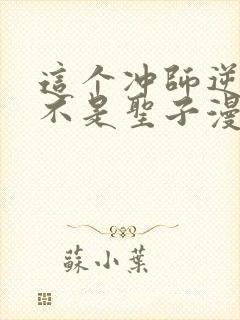 這个冲師逆
不是聖子漫
蘇小葉